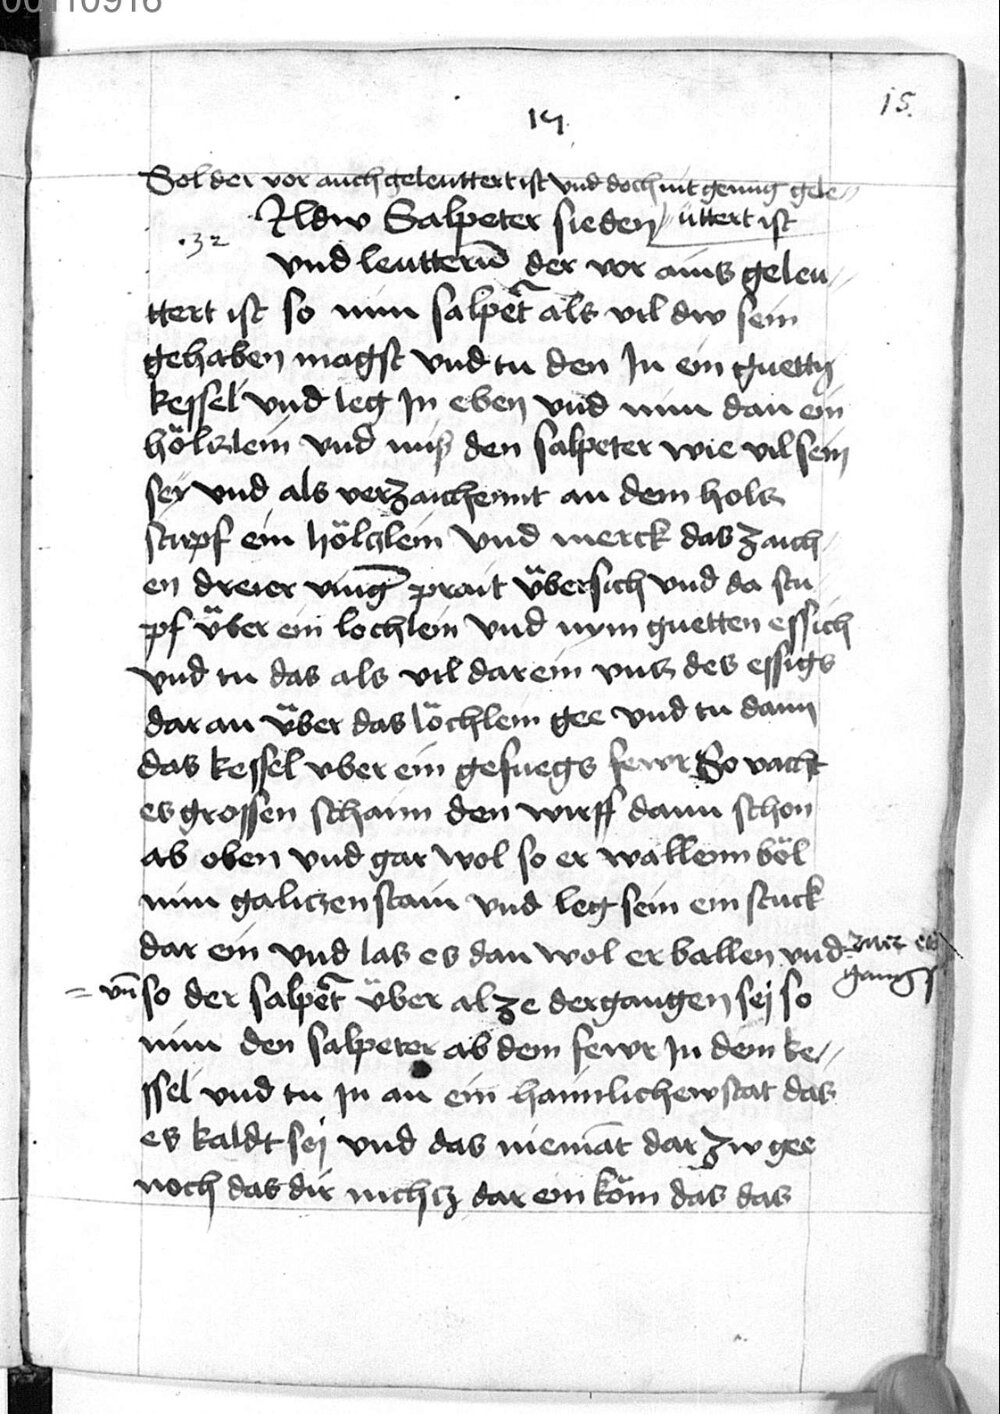 00110916
15.
15
Sol der vor auch geleuttert ist vnd doch nit genug gele//
Ildw Salpeter sieden // üttert ist
.32
vnd leutterñ der vor ains geleu//
ttert ist so nim salpet̃ als vil dw sein
gehaben magst vnd tu den In ein guettn
kessel vnd leg In eben vnd nim dan ein
hölczlein vnd miß den salpeter wie vil sein
seÿ vnd als verzaichennt an dem holcz
stupf ein hölczlein vnd merck das zaich/
en dreier ving̃ prait übersich vnd da stu/
pf über ein lochlein vnd nym guetten essich
vnd tu das als vil darein vncz des essigs
dar an über das löchlein gee vnd tu dann
das kessel vber ein gefuegs fewr So vacht
es grossen schaim den wirff dann schon
ab oben vnd gar wol so er wallenn böl
nim galiczenstain vnd leg sein ein stuck
dar ein vnd las es dan wol erballen vnd
gang
= vñ so der salpet̃ über al ze dergangen seÿ so
nim den salpeter ab dem fewr In dem ke//
ssel vnd tu In an ein haimlichew stat das
es kaldt seÿ vnd das niemãt dar zw gee
noch das dir nichcz dar ein köm das das